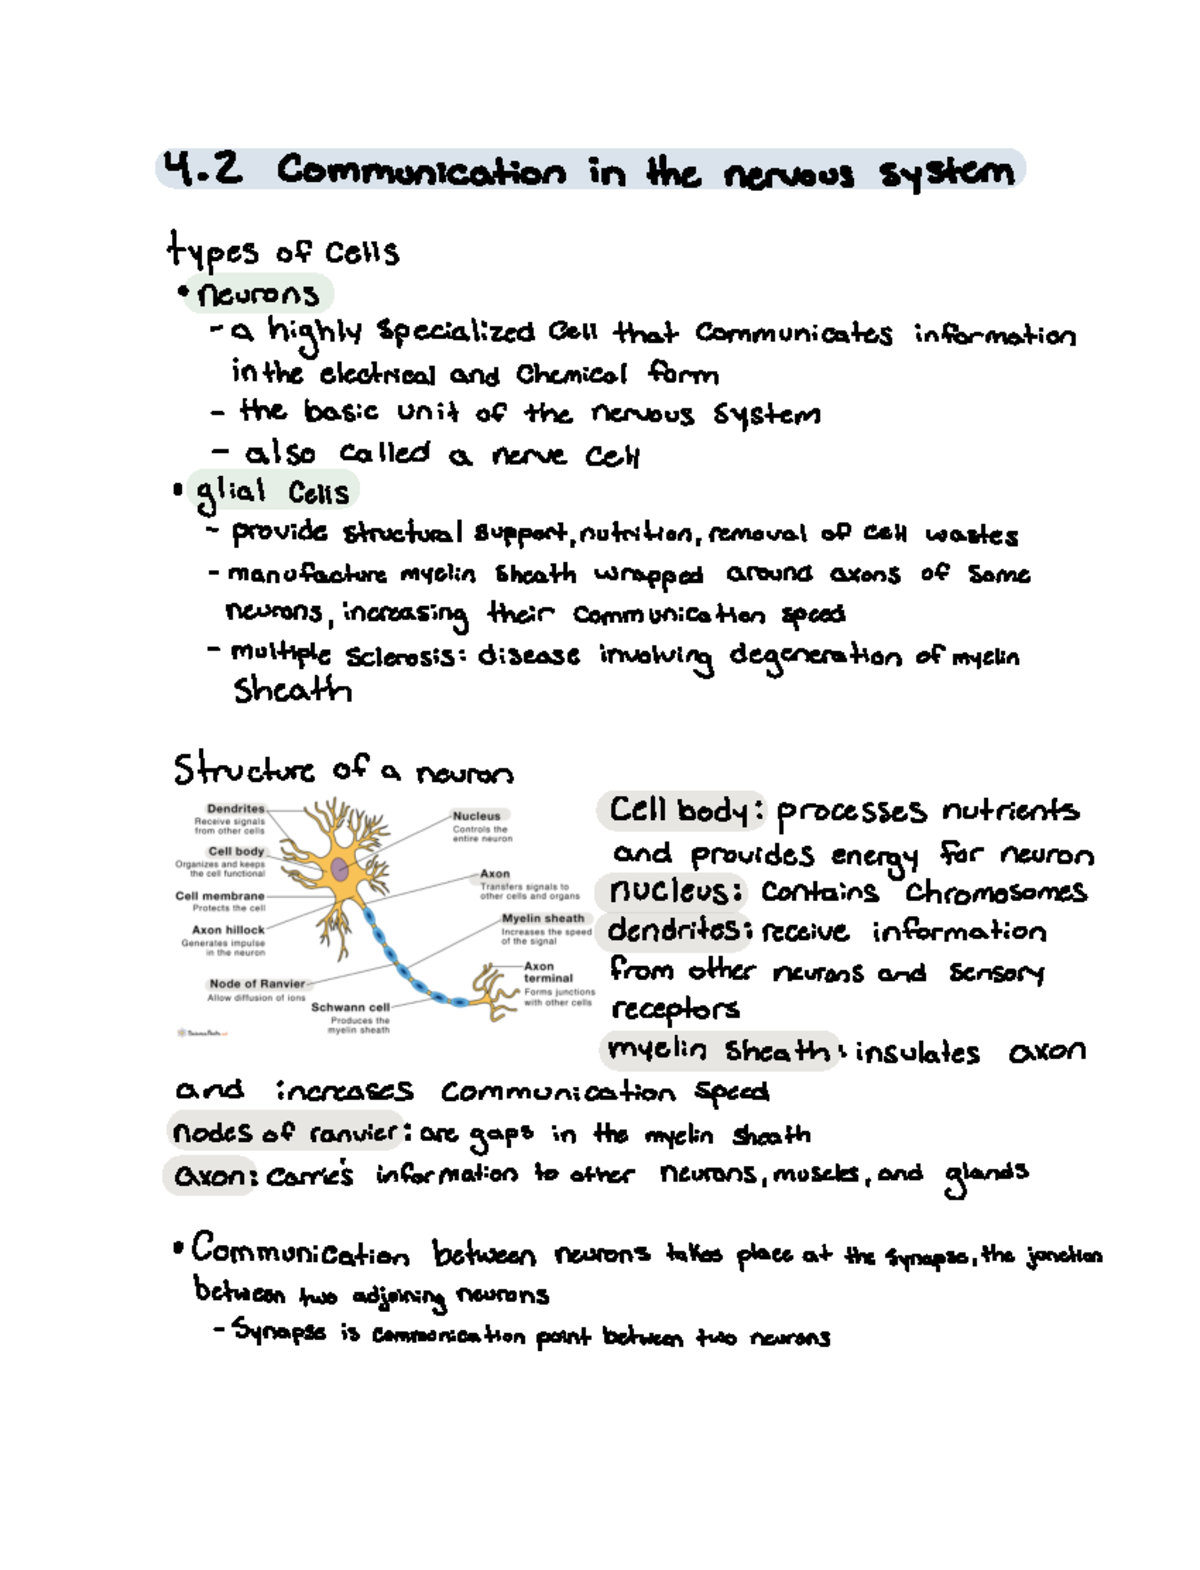 4.2 Communication in the nervous system
types of cells
• neurons
- a highly specialized cell that communicates information
in the electrical and chemical form
- the basic unit of the nervous system
- also called a nerve cell
• glial cells
- provide structural support, nutrition, removal of cell wastes
- manufacture myelin sheath wrapped around axons of some
neurons, increasing their communication speed
- multiple sclerosis: disease involving degeneration of myelin
sheath
Structure of a neuron
Dendrites
Receive signals
from other cells
Cell body
Organizes and keeps
the cell functional
Cell membrane
Protects the cell
Axon hillock
Generates impulse
in the neuron
Node of Ranvier
Allow diffusion of ions
Schwann cell
Produces the
myelin sheath
Nucleus
Controls the
entire neuron
Axon
Transfers signals to
other cells and organs
Myelin sheath
Increases the speed
of the signal
Axon
terminal
Forms junctions
with other cells
Cell body: processes nutrients
and provides energy for neuron
nucleus: contains chromosomes
dendrites: receive information
from other neurons and sensory
receptors
myelin sheath: insulates axon
and increases communication speed
nodes of ranvier: are gaps in the myelin sheath
axon: carries information to other neurons, muscles, and glands
• Communication between neurons takes place at the synapse, the junction
between two adjoining neurons
- Synapse is communication point between two neurons